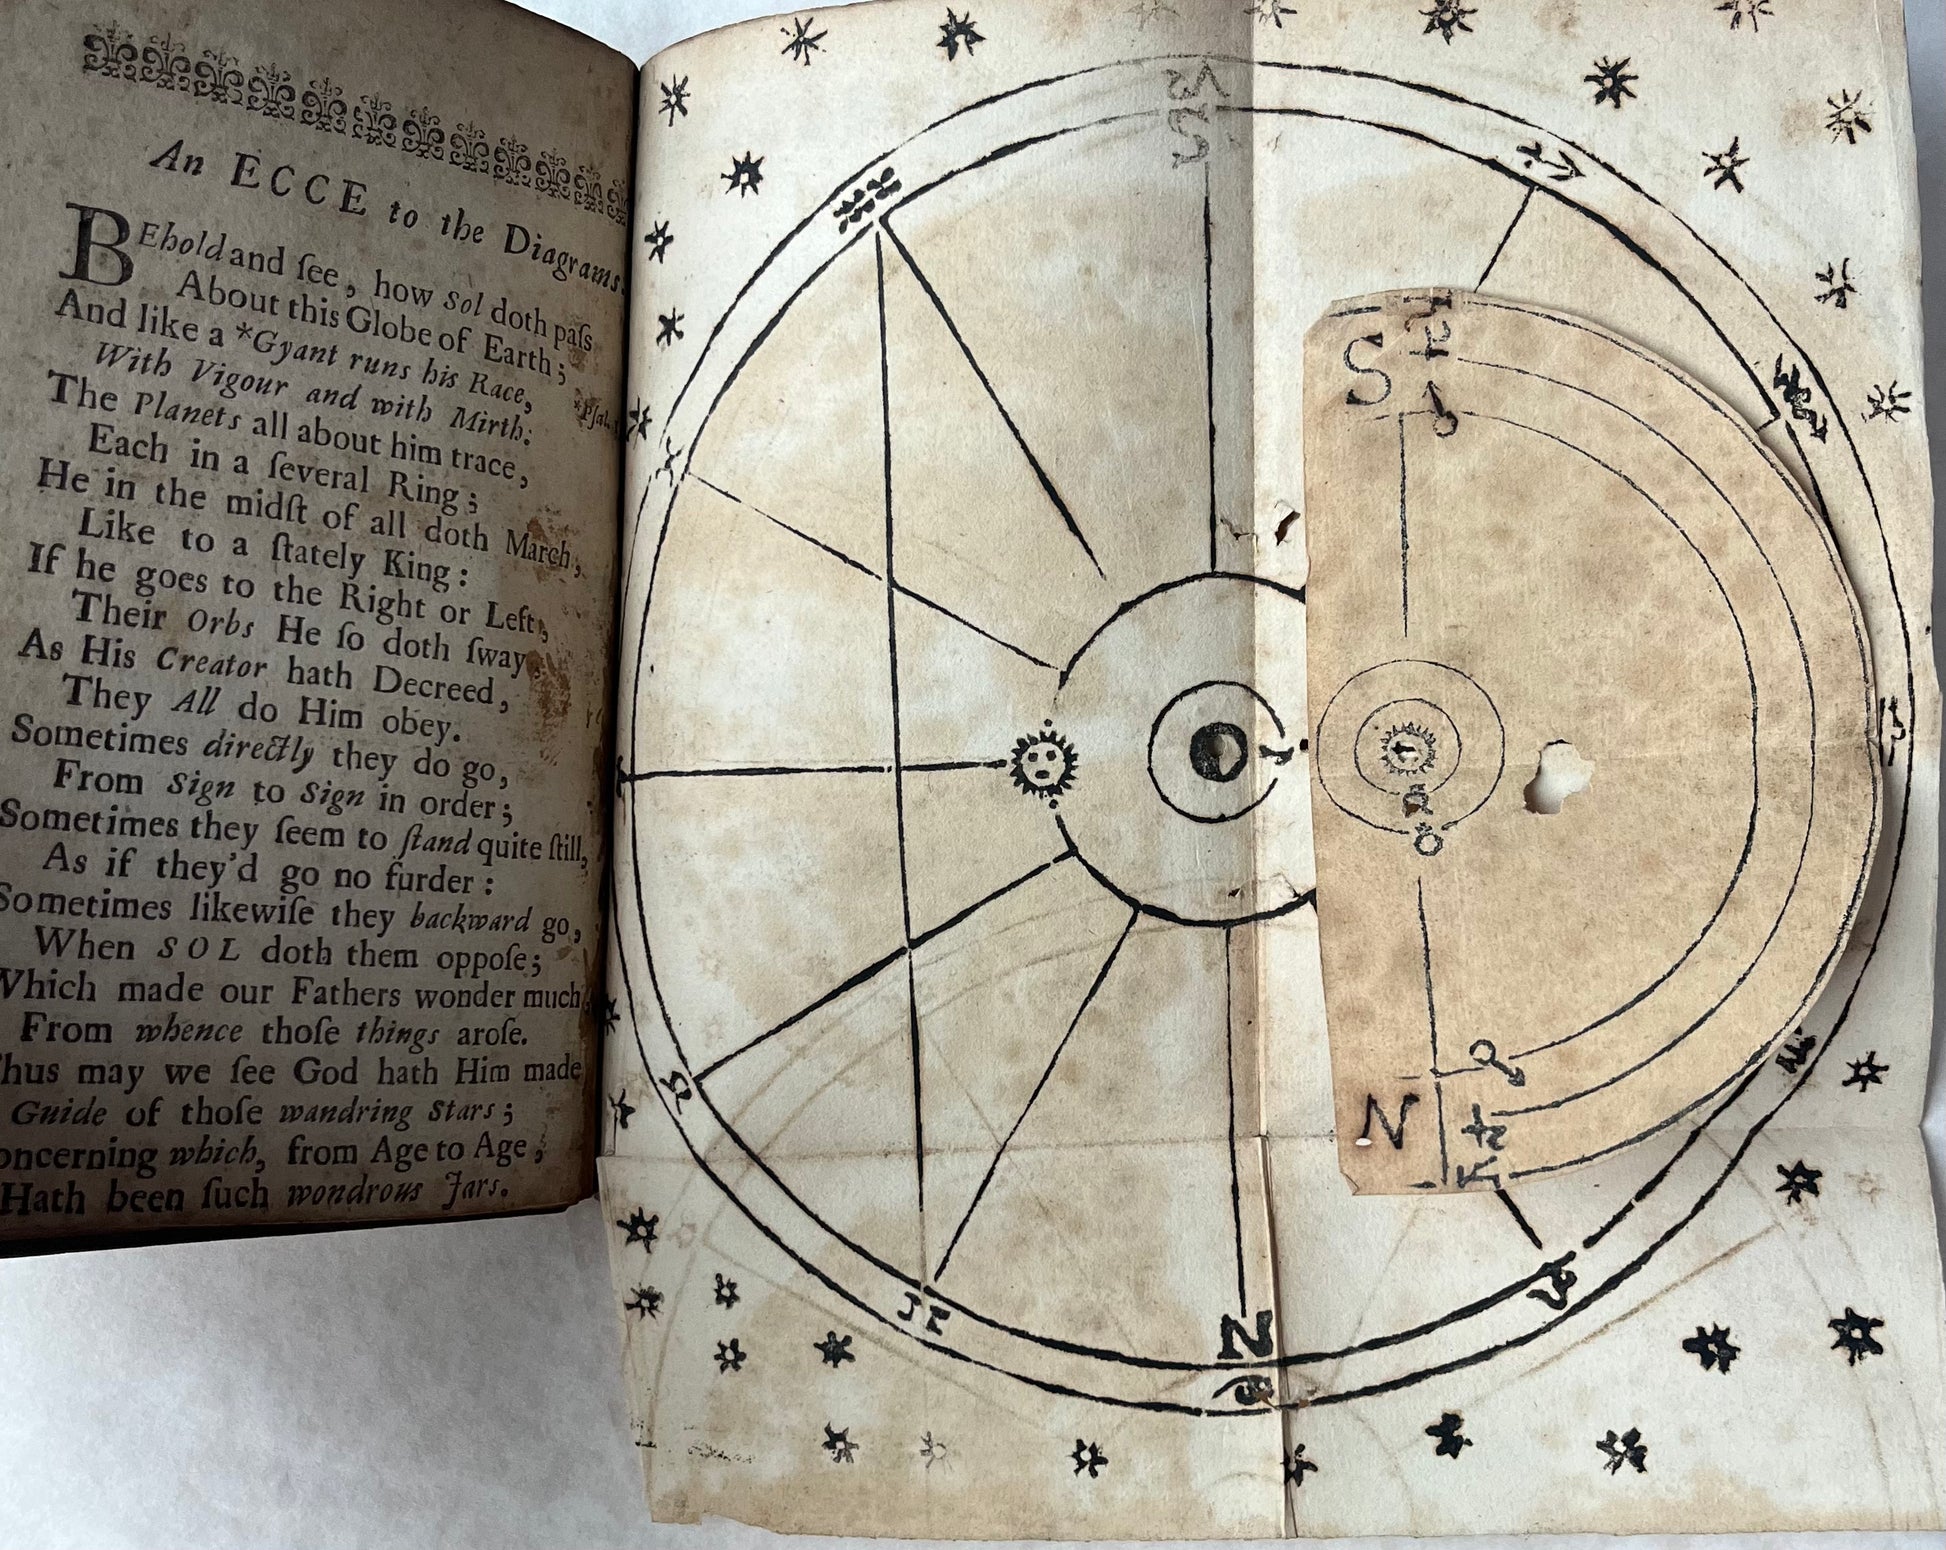 An ECCE to the Diagrams.
BEhold and ſee, how Sol doth paſs
About this Globe of Earth;
And like a *Gyant runs his Race,
With Vigour and with Mirth: *Pſal.
The Planets all about him trace,
Each in a ſeveral Ring;
He in the midſt of all doth March,
Like to a ſtately King:
If he goes to the Right or Left,
Their Orbs He ſo doth ſway;
As His Creator hath Decreed,
They All do Him obey.
Sometimes directly they do go,
From Sign to Sign in order;
Sometimes they ſeem to ſtand quite ſtill,
As if they'd go no furder:
Sometimes likewiſe they backward go,
When SOL doth them oppoſe;
Which made our Fathers wonder much,
From whence thoſe things aroſe.
Thus may we ſee God hath Him made
Guide of thoſe wandring Stars;
Concerning which, from Age to Age,
Hath been ſuch wondrous Jars.
♑
S
♒
♐
♓
♏
♄
♃
S
♂
♈
♎
☽
☿
♀
♌
♍
♂
N
♃
♄
♊
N
♋